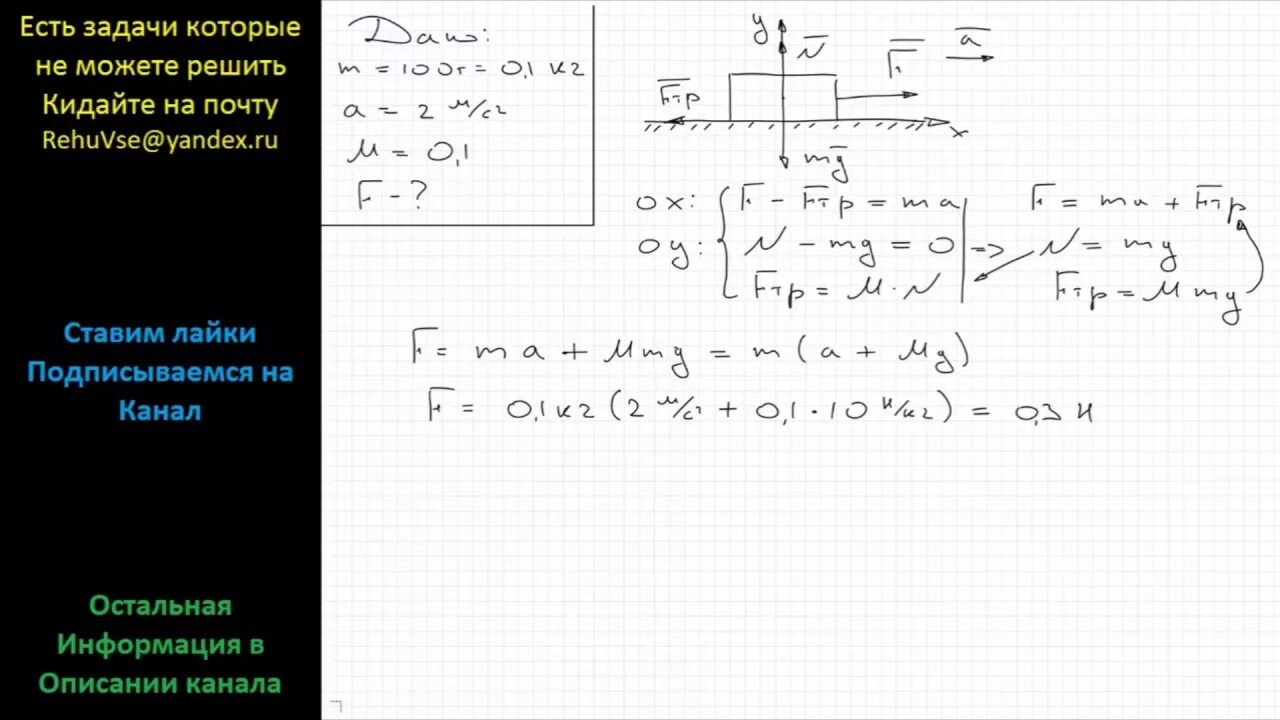 Есть задачи которые
не можете решить
Кидайте на почту
RehuVse@yandex.ru
Ставим лайки
Подписываемся на
Канал
Остальная
Информация в
Описании канала
Дано:
m = 100г = 0,1 кг
a = 2 м/с²
μ = 0,1
F - ?
y
N
F
a
Fтр
x
mg
ox: F - Fтр = ma F = ma + Fтр
oy: N - mg = 0 => N = mg
Fтр = μ·N Fтр = μmg
F = ma + μmg = m(a + μg)
F = 0,1кг(2 м/с² + 0,1·10 н/кг) = 0,3 н